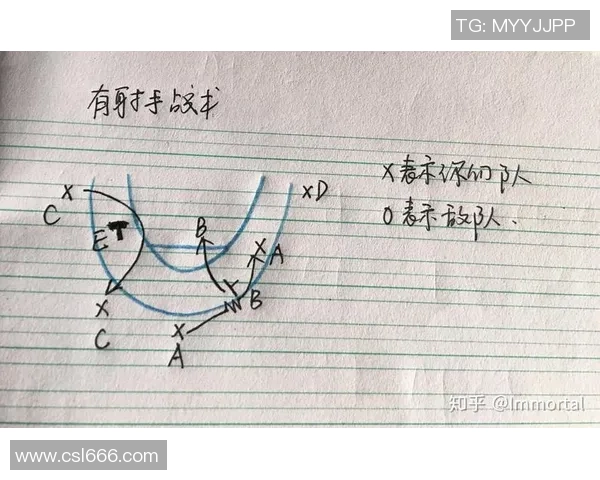 TG: MYYJJPP
有射手战术
X表示你的队
O表示敌队.
X
C
E T
B
X A
X D
X
C
X
A
B
知乎 @Immortal
www.csl666.com